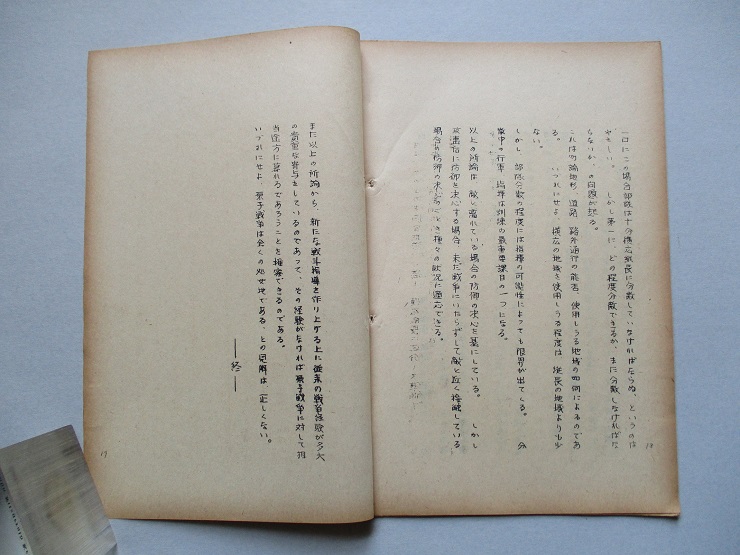 一口にこの場合部隊は十分横広縦長に分散していなければならぬ、というのは
やさしい。しかし第一に、どの程度分散できるか、また分散しなければな
らないか、の問題が起る。
これは勿論地形、道路、路外通行の能否、使用しうる地域の如何によるのであ
る。いづれにせよ、横広の地域を使用しうる程度は、縦長の地域よりも少
ない。
しかし部隊分散の程度には指揮の可能性によっても限界が出てくる。分
散中の行軍、指揮は訓練の最重要課目の一つになる。
以上の所論は、敵と離れている場合の防御の決心を基にしている。しかし
に防御を決心する場合、未だ戦争にいたらずして敵と近く接触している
場合の防御の決心のごとき種々の状況に適応できる。
18
また以上の所論から、新たな戦斗指導を作り上げる上に従来の戦争経験が多大
の貴重な寄与をしているのであって、その経験がなければ原子戦争に対して
途方に暮れるであろうことを推察できるのである。
いづれにせよ、原子戦争は全くの処女地である、との見解は、正しくない。
——終——
19